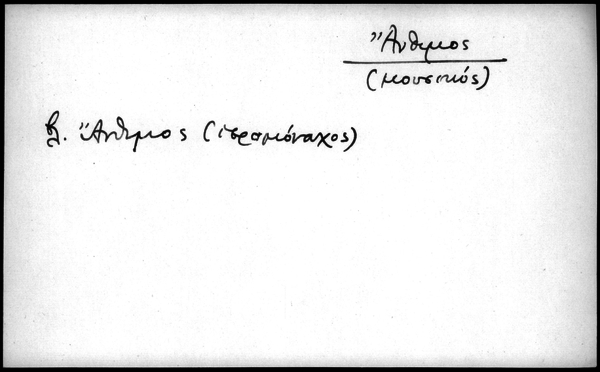 Ἄνθιμος
(μουσικός)
βλ. Ἄνθιμος (ἱερομόναχος)